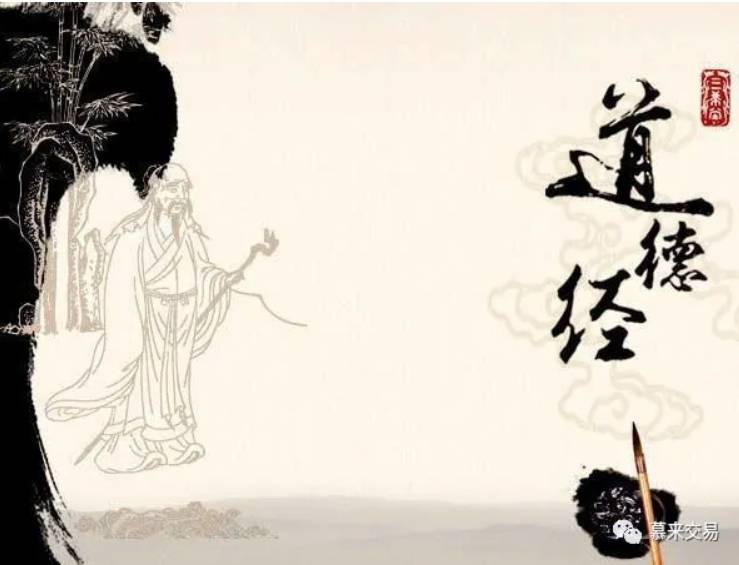 道德经
慕来交易